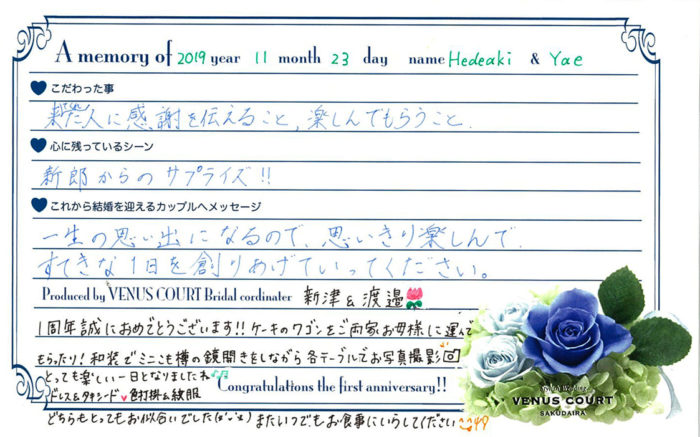 A memory of 2019 year 11 month 23 day name Hedeaki & Yae
こだわった事
来た人に感謝を伝えること、楽しんでもらうこと
心に残っているシーン
新郎からのサプライズ!!
これから結婚を迎えるカップルへメッセージ
一生の思い出になるので、思いきり楽しんで
すてきな1日を創りあげていってください。
Produced by VENUS COURT Bridal cordinater 新津&渡邉
1周年誠におめでとうございます!!ケーキのワゴンをご両家お母様に運んで
もらったり!和装でミニこも樽の鏡開きをしながら各テーブルでお写真撮影
とっても楽しい一日となりましたね
ドレス&タキシード 色打掛&紋服
Congratulations the first anniversary!!
どちらもとってもお似合いでした またいつでもお食事にいらしてください
VENUS COURT
SAKUDAIRA